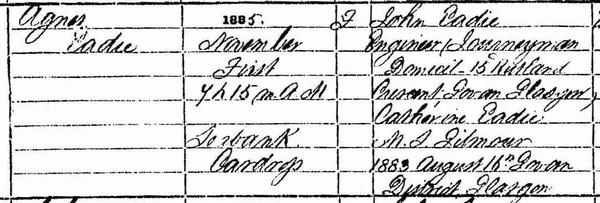 Agnes
Eadie
1885.
November
First
7 h 15 m A M
Cardross
F
John Eadie
Engineer (Journeyman
Domicil - 15 Rutland
Crescent Govan Glasgow)
Catherine Eadie
M. S. Gilmour
1883 August 16th Govan
District Glasgow